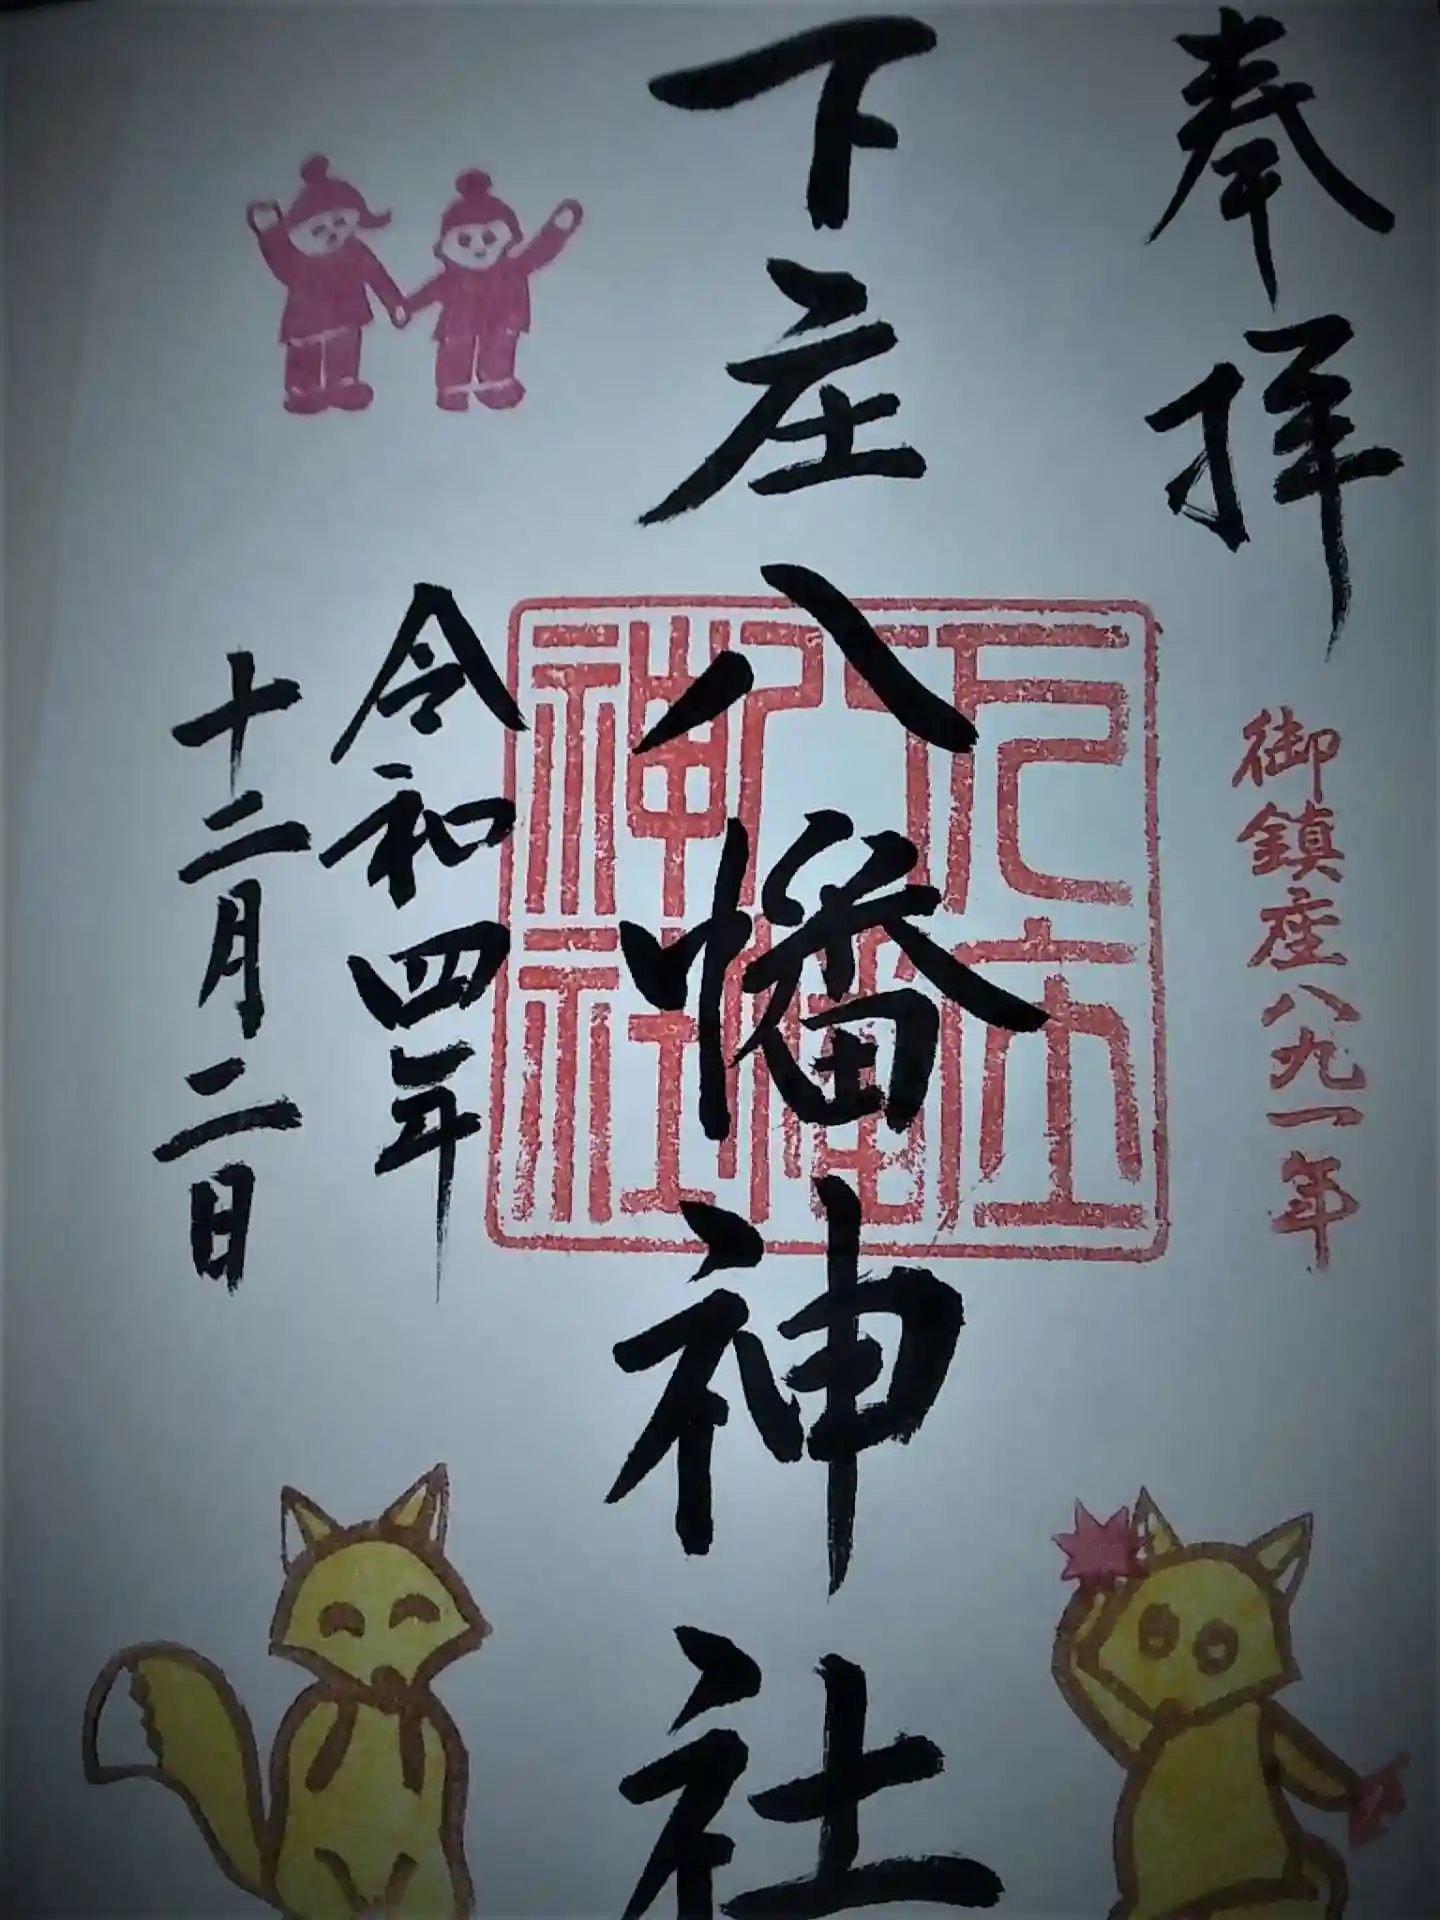 奉拝
御鎮座八九一年
下庄八幡神社
下庄
八幡
神社
令和四年
十二月二日